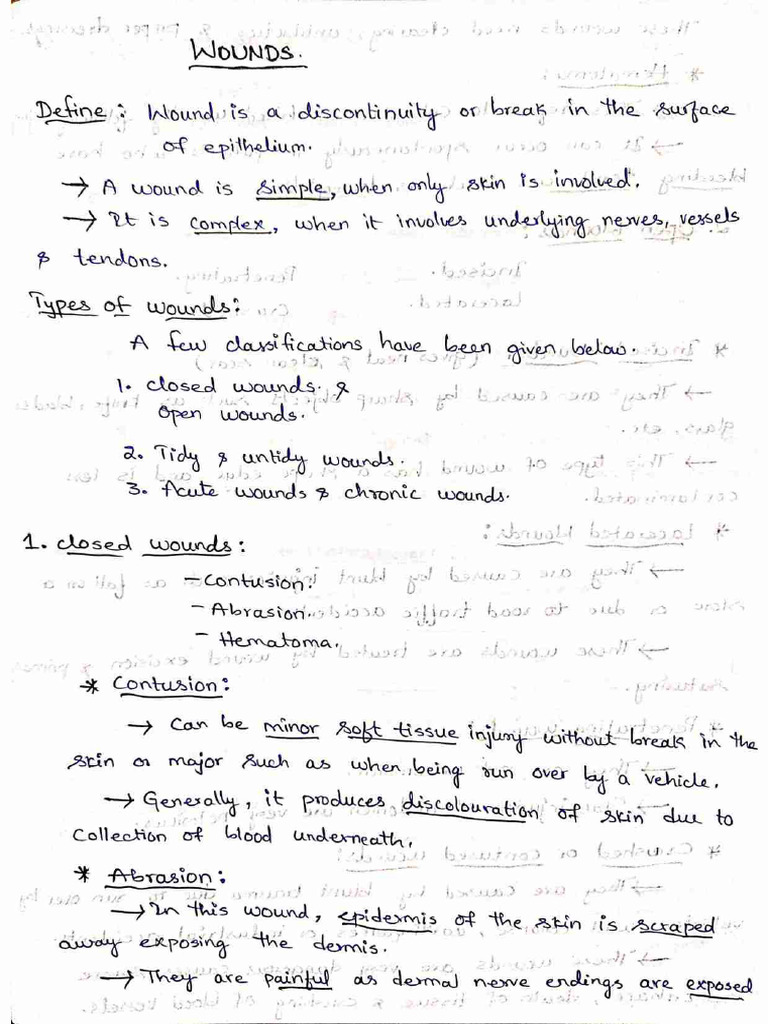 WOUNDS.
Define : Wound is a discontinuity or break in the surface
of epithelium.
→ A wound is simple, when only skin is involved.
→ It is complex, when it involves underlying nerves, vessels
& tendons.
Types of wounds:
A few classifications have been given below.
1. closed wounds. &
Open wounds.
2. Tidy & untidy wounds.
3. Acute wounds & chronic wounds.
1. closed wounds:
- Contusion.
- Abrasion.
- Hematoma.
* Contusion:
→ Can be minor soft tissue injury without break in the
skin or major such as when being run over by a vehicle.
→ Generally, it produces discolouration of skin due to
collection of blood underneath.
* Abrasion:
→ In this wound, epidermis of the skin is scraped
away exposing the dermis.
→ They are painful as dermal nerve endings are exposed